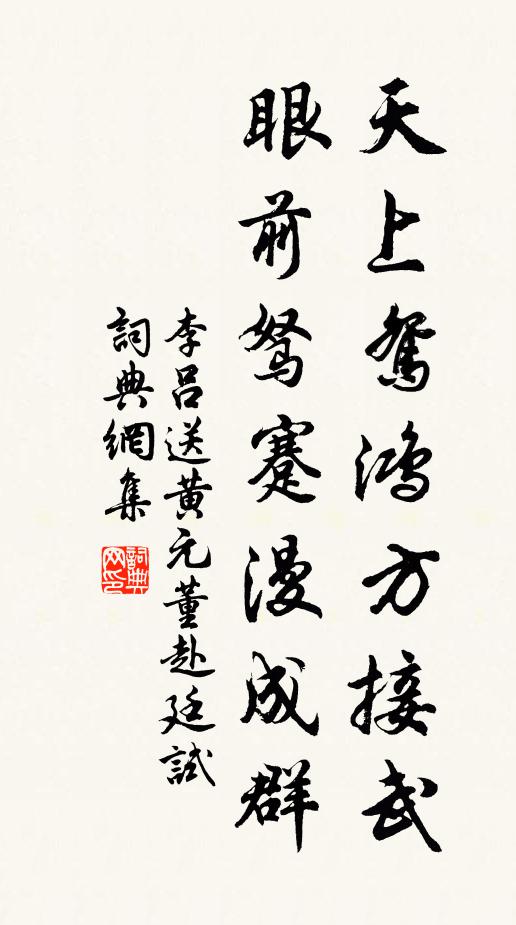 天上鴛鴻方接武
眼前駑蹇漫成群
李呂送黃元董赴廷試
詞典網集
詞典网印